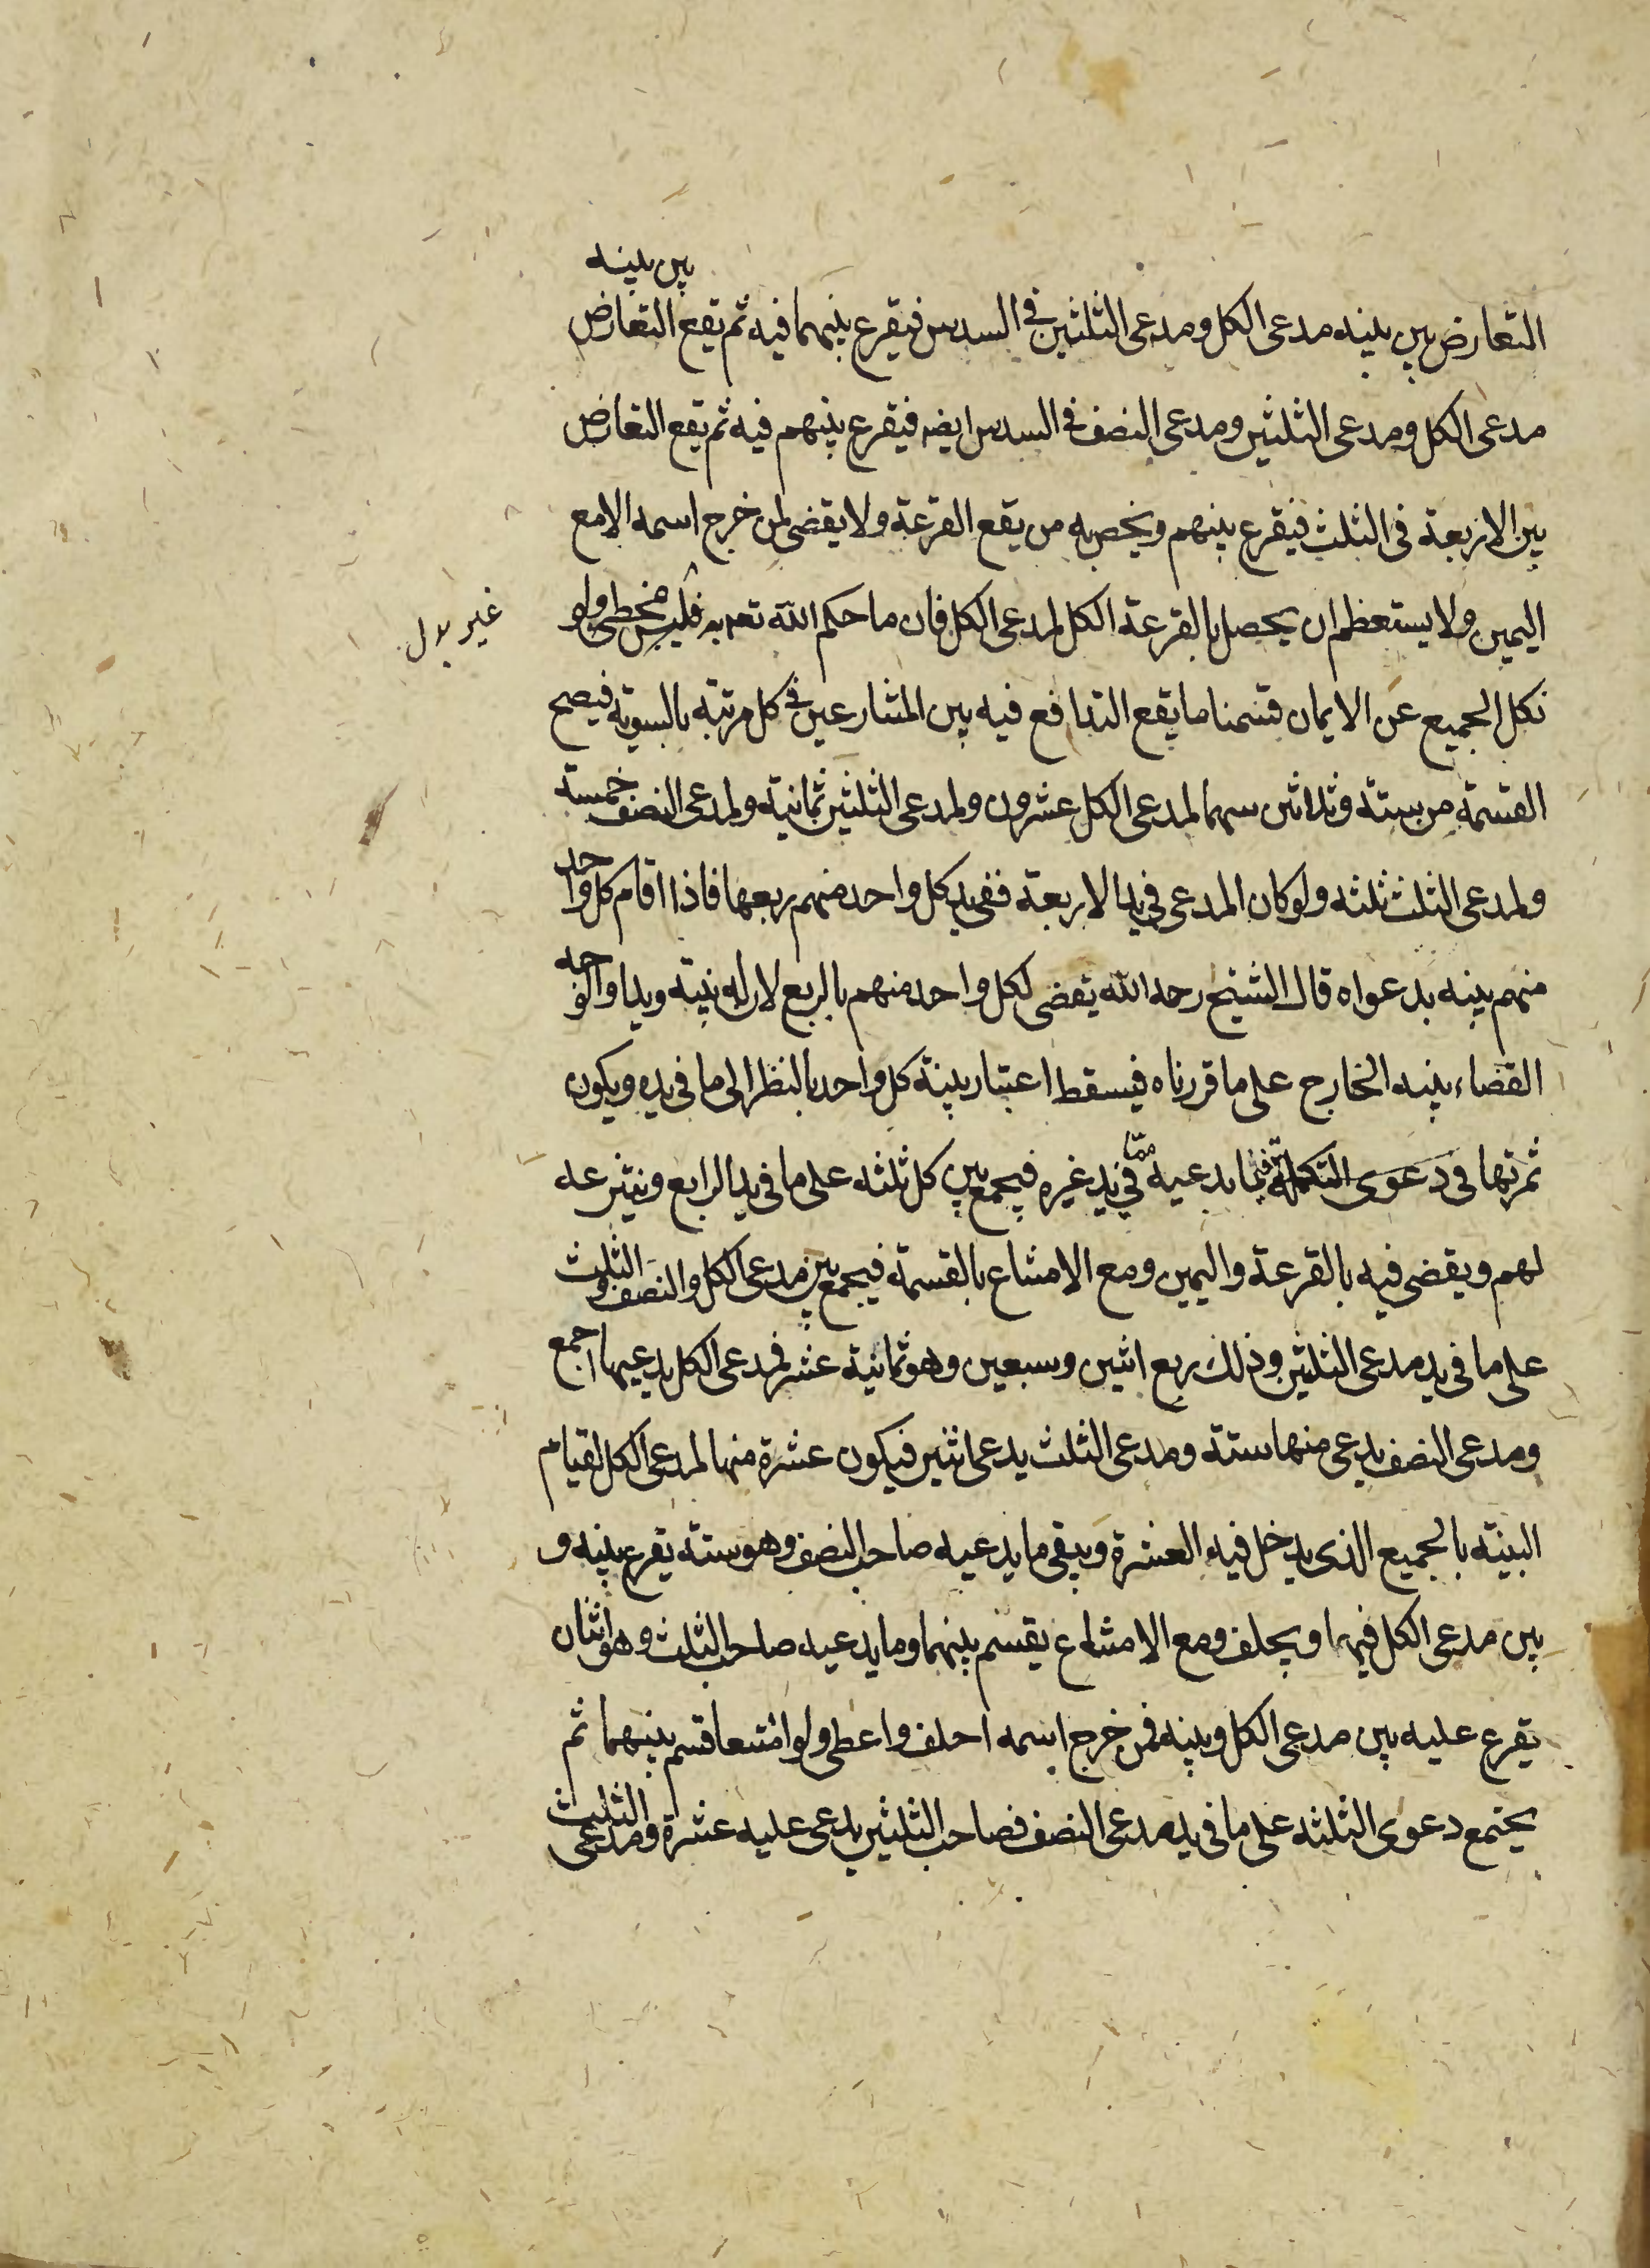 التعارض بين بينه مدعى الكل ومدعى الثلثين فى السدس فيقرع بينهما فيه ثم يقع التعارض بين بينه
مدعى الكل ومدعى الثلثين ومدعى النصف فى السدس ايضه فيقرع بينهم فيه ثم يقع التعارض
بين الاربعة فى الثلث فيقرع بينهم ويخص به من يقع القرعة ولا يقضى لمن خرج اسمه الا مع
اليمين ولا يستعظم ان يحصل بالقرعة الكل لمدعى الكل فان ما حكم الله تعه به فليس مخطى ولو
غير بدل
نكل الجميع عن الايمان قسمنا ما يقع التدافع فيه بين المتنازعين فى كل مرتبة بالسوية فيصح
القسمة من ستة وثلاثين سهما لمدعى الكل عشرون ولمدعى الثلثين ثمانية ولمدعى النصف خمسة
ولمدعى الثلث ثلثه ولو كان المدعى فى يد الاربعة ففى يد كل واحد منهم ربعها فاذا اقام كل واحد
منهم بينه بدعواه قال الشيخ رحمه الله يقضى لكل واحد منهم بالربع لان له بينة ويدا والوجه
القضاء ببينه الخارج على ما قررناه فيسقط اعتبار بينة كل واحد بالنظر الى ما فى يده ويكون
ثمرتها فى دعوى التكملة فيما يدعيه مما فى يد غيره فيجمع بين كل ثلثه على ما فى يد الرابع وينتزعه
لهم ويقضى فيه بالقرعة واليمين ومع الامتناع بالقسمة فيجمع بين مدعى الكل والنصف والثلث
على ما فى يد مدعى الثلثين وذلك ربع اثنين وسبعين وهو ثمانية عشر فمدعى الكل يدعيها اجمع
ومدعى النصف يدعى منها ستة ومدعى الثلث يدعى اثنين فيكون عشرة منها لمدعى الكل لقيام
البينة بالجميع الذى يدخل فيه العشرة ويبقى ما يدعيه صاحب النصف وهو ستة يقرع بينه و
بين مدعى الكل فيها ويحلف ومع الامتناع يقسم بينهما وما يدعيه صاحب الثلث وهو اثنان
يقرع عليه بين مدعى الكل وبينه فمن خرج اسمه احلف واعطى ولو امتنعا قسم بينهما ثم
يجتمع دعوى الثلثه على ما فى يد مدعى النصف فصاحب الثلثين يدعى عليه عشرة ومدعى الثلث